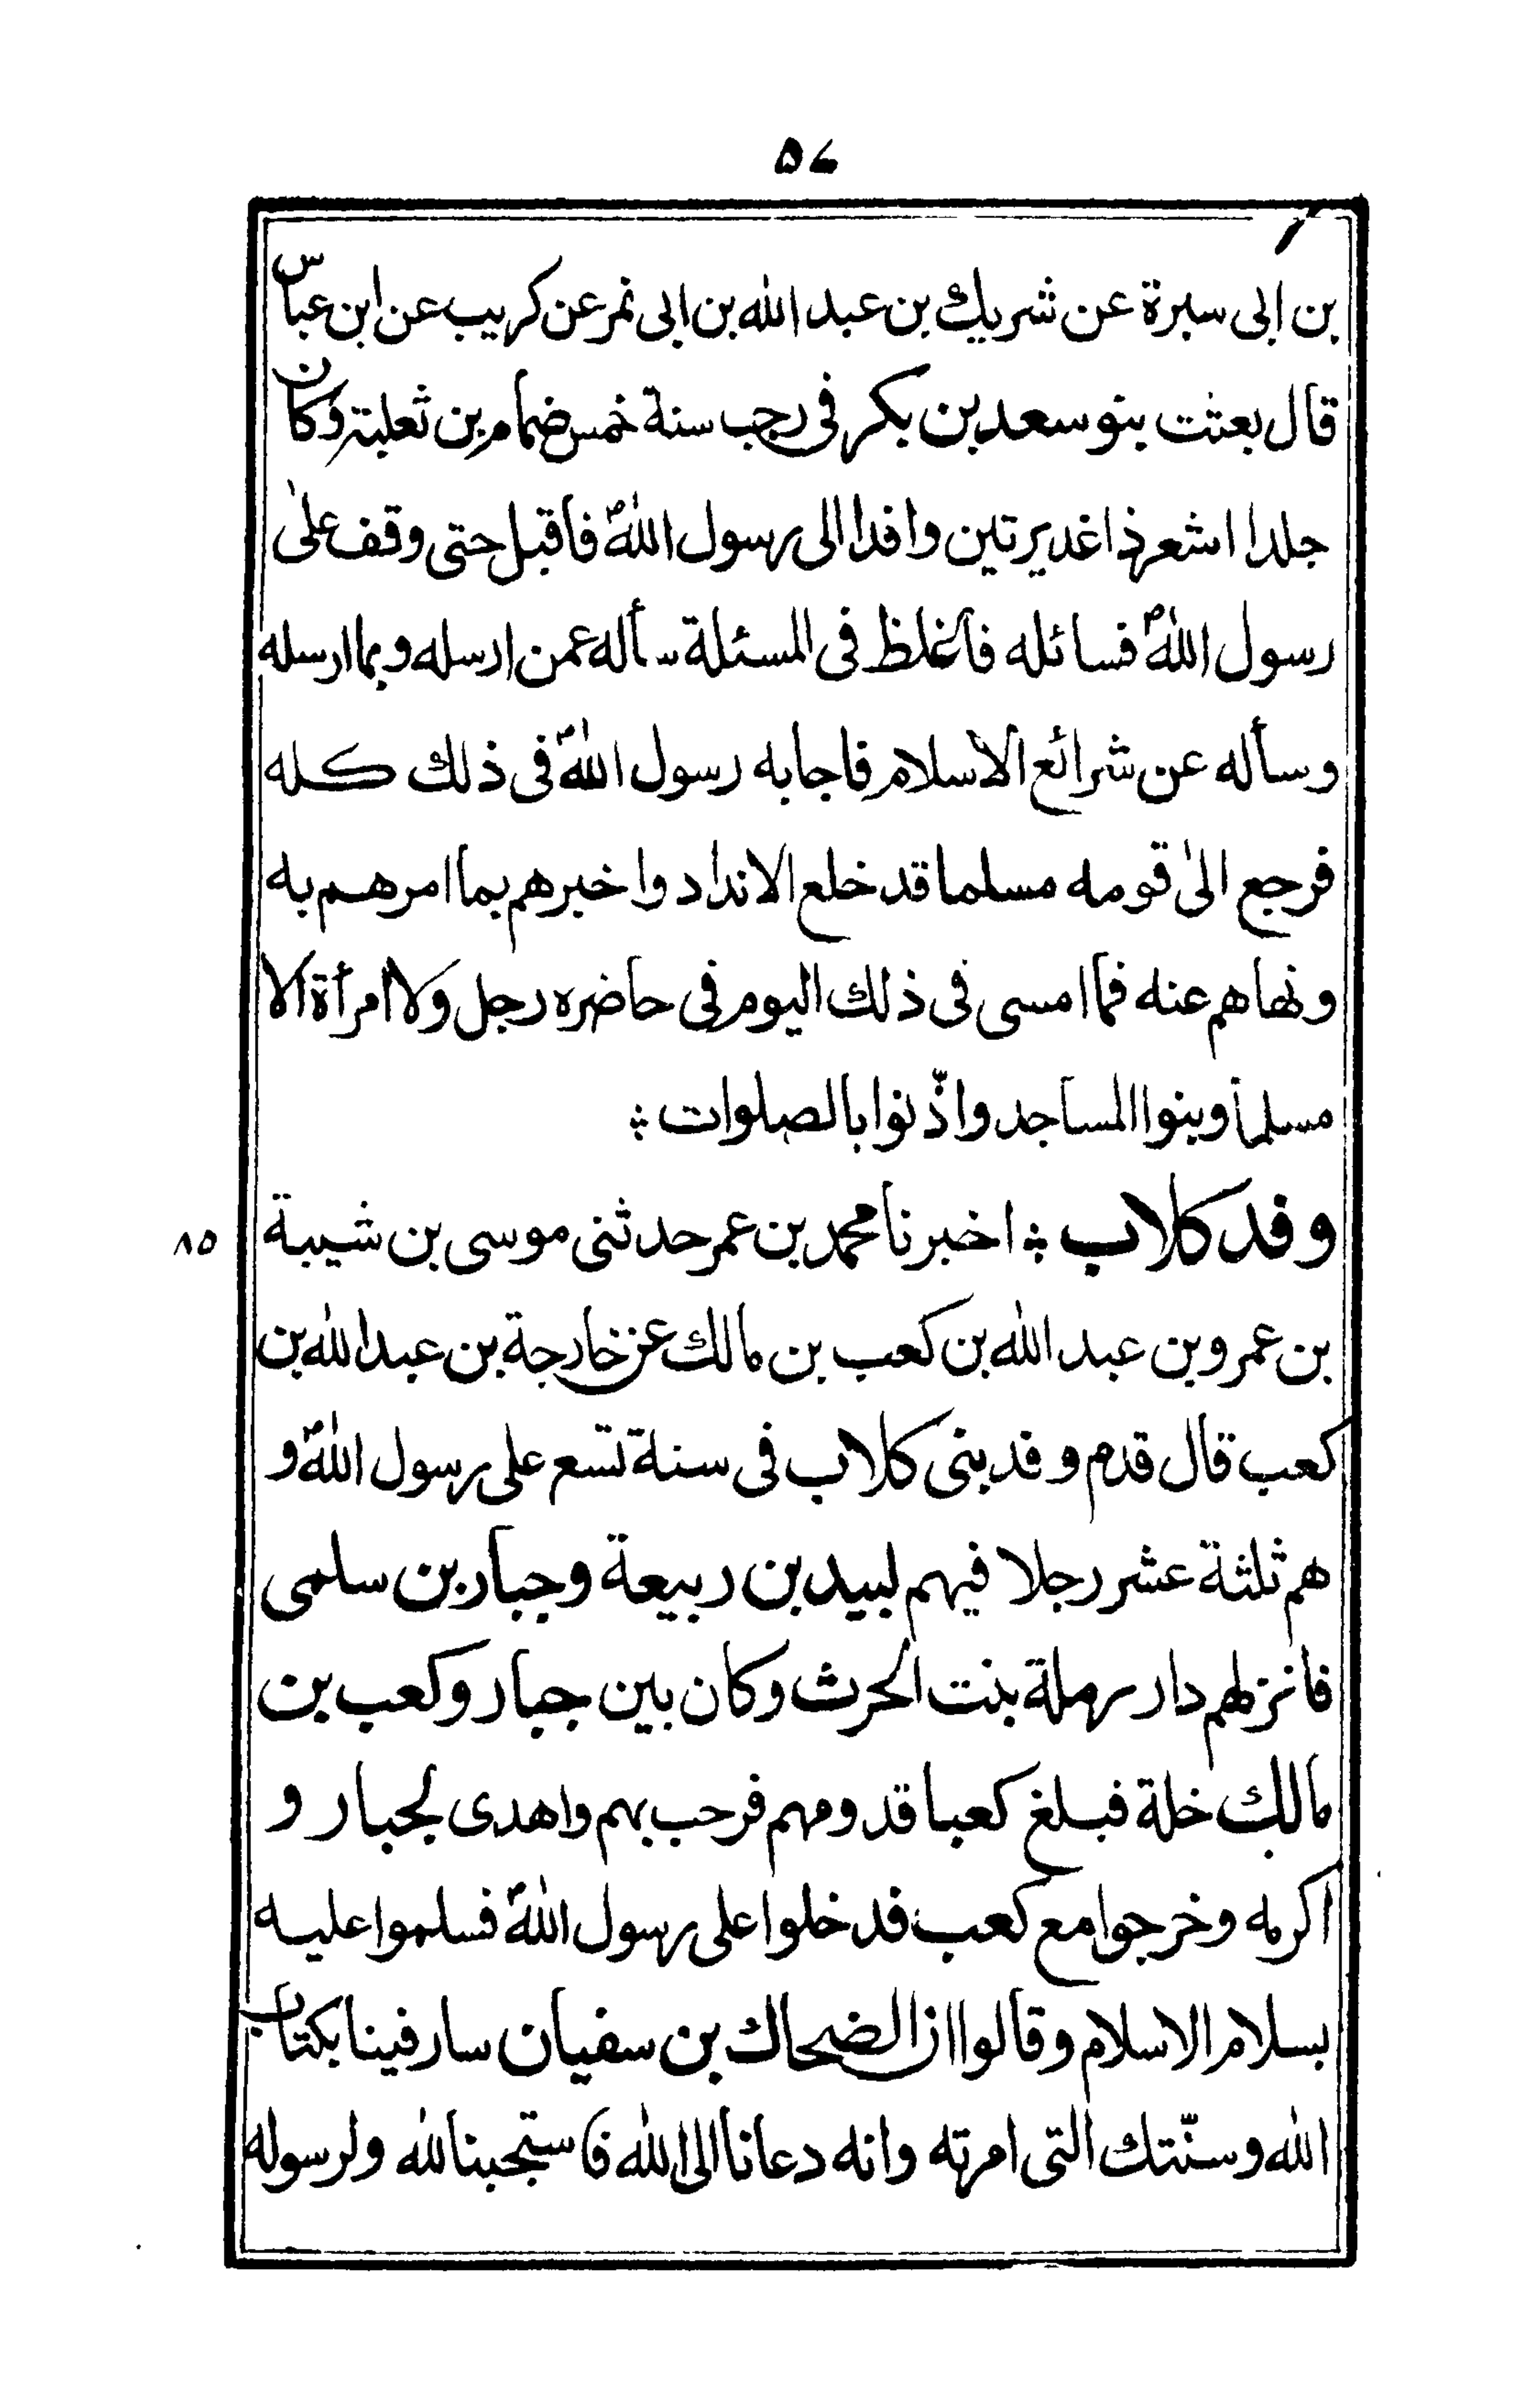 ۵۷
بن ابى سبرة عن شريك بن عبد الله بن ابى نمر عن كريب عن ابن عباس
قال بعثت بنو سعد بن بكر فى رجب سنة خمس ضمام بن ثعلبة وكان
جلدا اشعر ذا غديرتين وافدا الى رسول اللهؐ فاقبل حتى وقف علىٰ
رسول اللهؐ فسائله فاغلظ فى المسئلة سأله عمن ارسله وبما ارسله
وسأله عن شرائع الاسلام فاجابه رسول اللهؐ فى ذلك كله
فرجع الىٰ قومه مسلما قد خلع الانداد واخبرهم بما امرهم به
ونهاهم عنه فما امسى فى ذلك اليوم فى حاضره رجل ولا امرأة الا
مسلما وبنوا المساجد واذّنوا بالصلوات ؞
وفد كلاب ؞ اخبرنا محمد بن عمر حدثنى موسى بن شيبة
٨٥
بن عمرو بن عبد الله بن كعب بن مالك عن خارجة بن عبد الله بن
كعب قال قدم وفد بنى كلاب فى سنة تسع على رسول اللهؐ و
هم ثلثة عشر رجلا فيهم لبيد بن ربيعة وجبار بن سلمى
فانزلهم دار رملة بنت الحرث وكان بين جبار وكعب بن
مالك خلة فبلغ كعبا قدومهم فرحب بهم واهدى لجبار و
اكرمه وخرجوا مع كعب فدخلوا على رسول اللهؐ فسلموا عليه
بسلام الاسلام وقالوا ان الضحاك بن سفيان سار فينا بكتاب
الله وسنّتك التى امرته وانه دعانا الى الله فاستجبنا لله ولرسوله